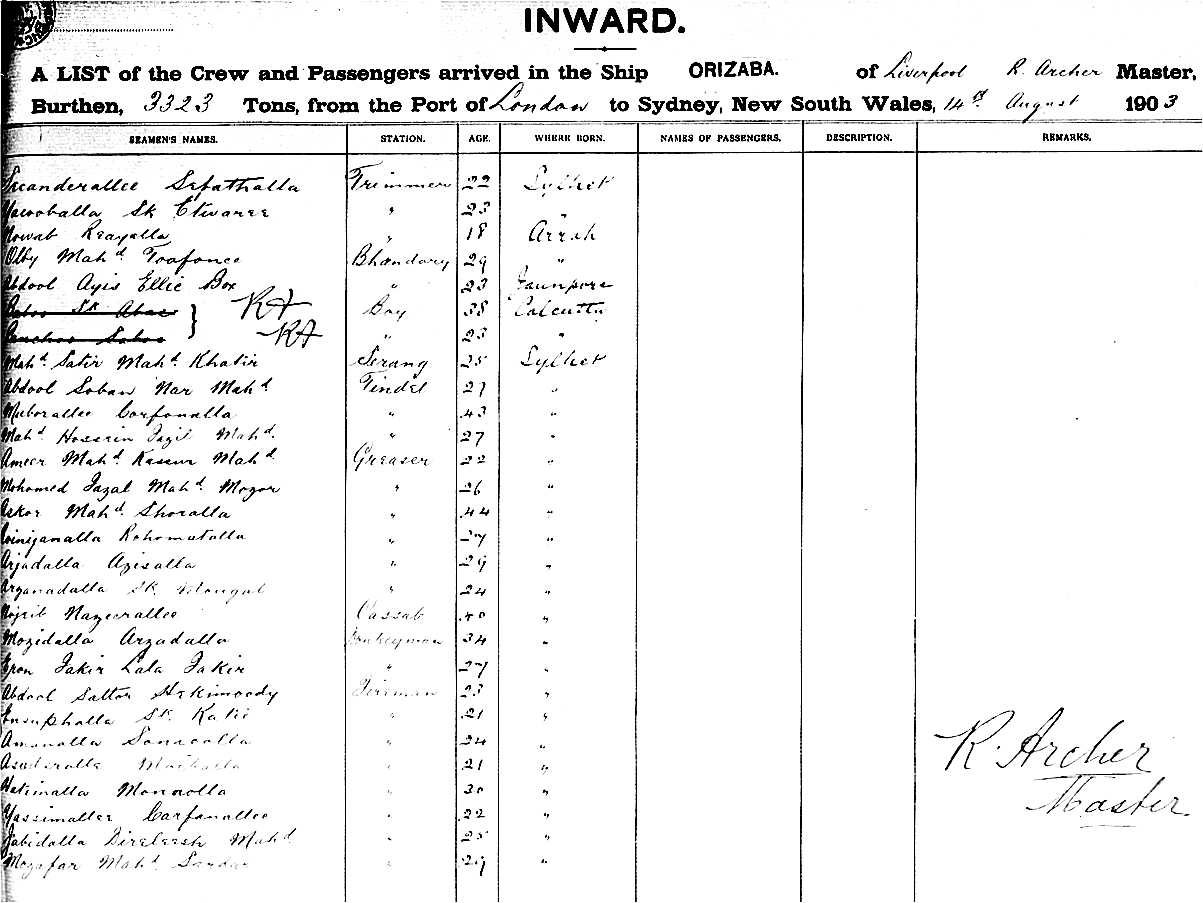 INWARD.
A LIST of the Crew and Passengers arrived in the Ship ORIZABA. of Liverpool R. Archer Master,
Burthen, 3323 Tons, from the Port of London to Sydney, New South Wales, 14th August 1903
SEAMEN'S NAMES. STATION. AGE. WHERE BORN. NAMES OF PASSENGERS. DESCRIPTION. REMARKS.
Secanderallee Sefathalla Trimmer 22 Sylhet
Yacooballa Sk Etwaree " 23 "
Nowab Reayalla " 18 Arrah
Olby Mahd Toofonee Bhandary 29 "
Abdool Ayis Ellie Box " 23 Jaunpore
Sk RA Boy 38 Calcutta
RA " 23 "
Mahd. Satir Mahd. Khatir Serang 25 Sylhet
Abdool Soban Nar Mahd Tindel 27 "
Muborallee Carfonalla " 43 "
Mahd Hossein Fazil Mahd. " 27 "
Ameer Mahd Kassur Mahd Greaser 22 "
Mohomed Fazal Mahd. Mozor " 26 "
Askor Mahd Shoralla " 44 "
Rohomutalla " 27 "
Arjadalla Azisalla " 29 "
Arzanadalla Sk. Mongul " 24 "
Nojeib Nazecrallee Cassab 40 "
Mozidalla Arzadalla Donkeyman 34 "
Eron Fakir Lala Fakir " 27 "
Abdool Sattar Hakimoody Fireman 23 "
Ensuphalla Sk. Katie " 21 "
Amanalla Sonacolla " 24 "
" 21 "
Hatimalla Monaolla " 30 "
Yassimallee Carfanallee " 22 "
Zabidalla Mahd " 25 "
Mozafar Mahd. Sardar " 29 "
R. Archer
Master